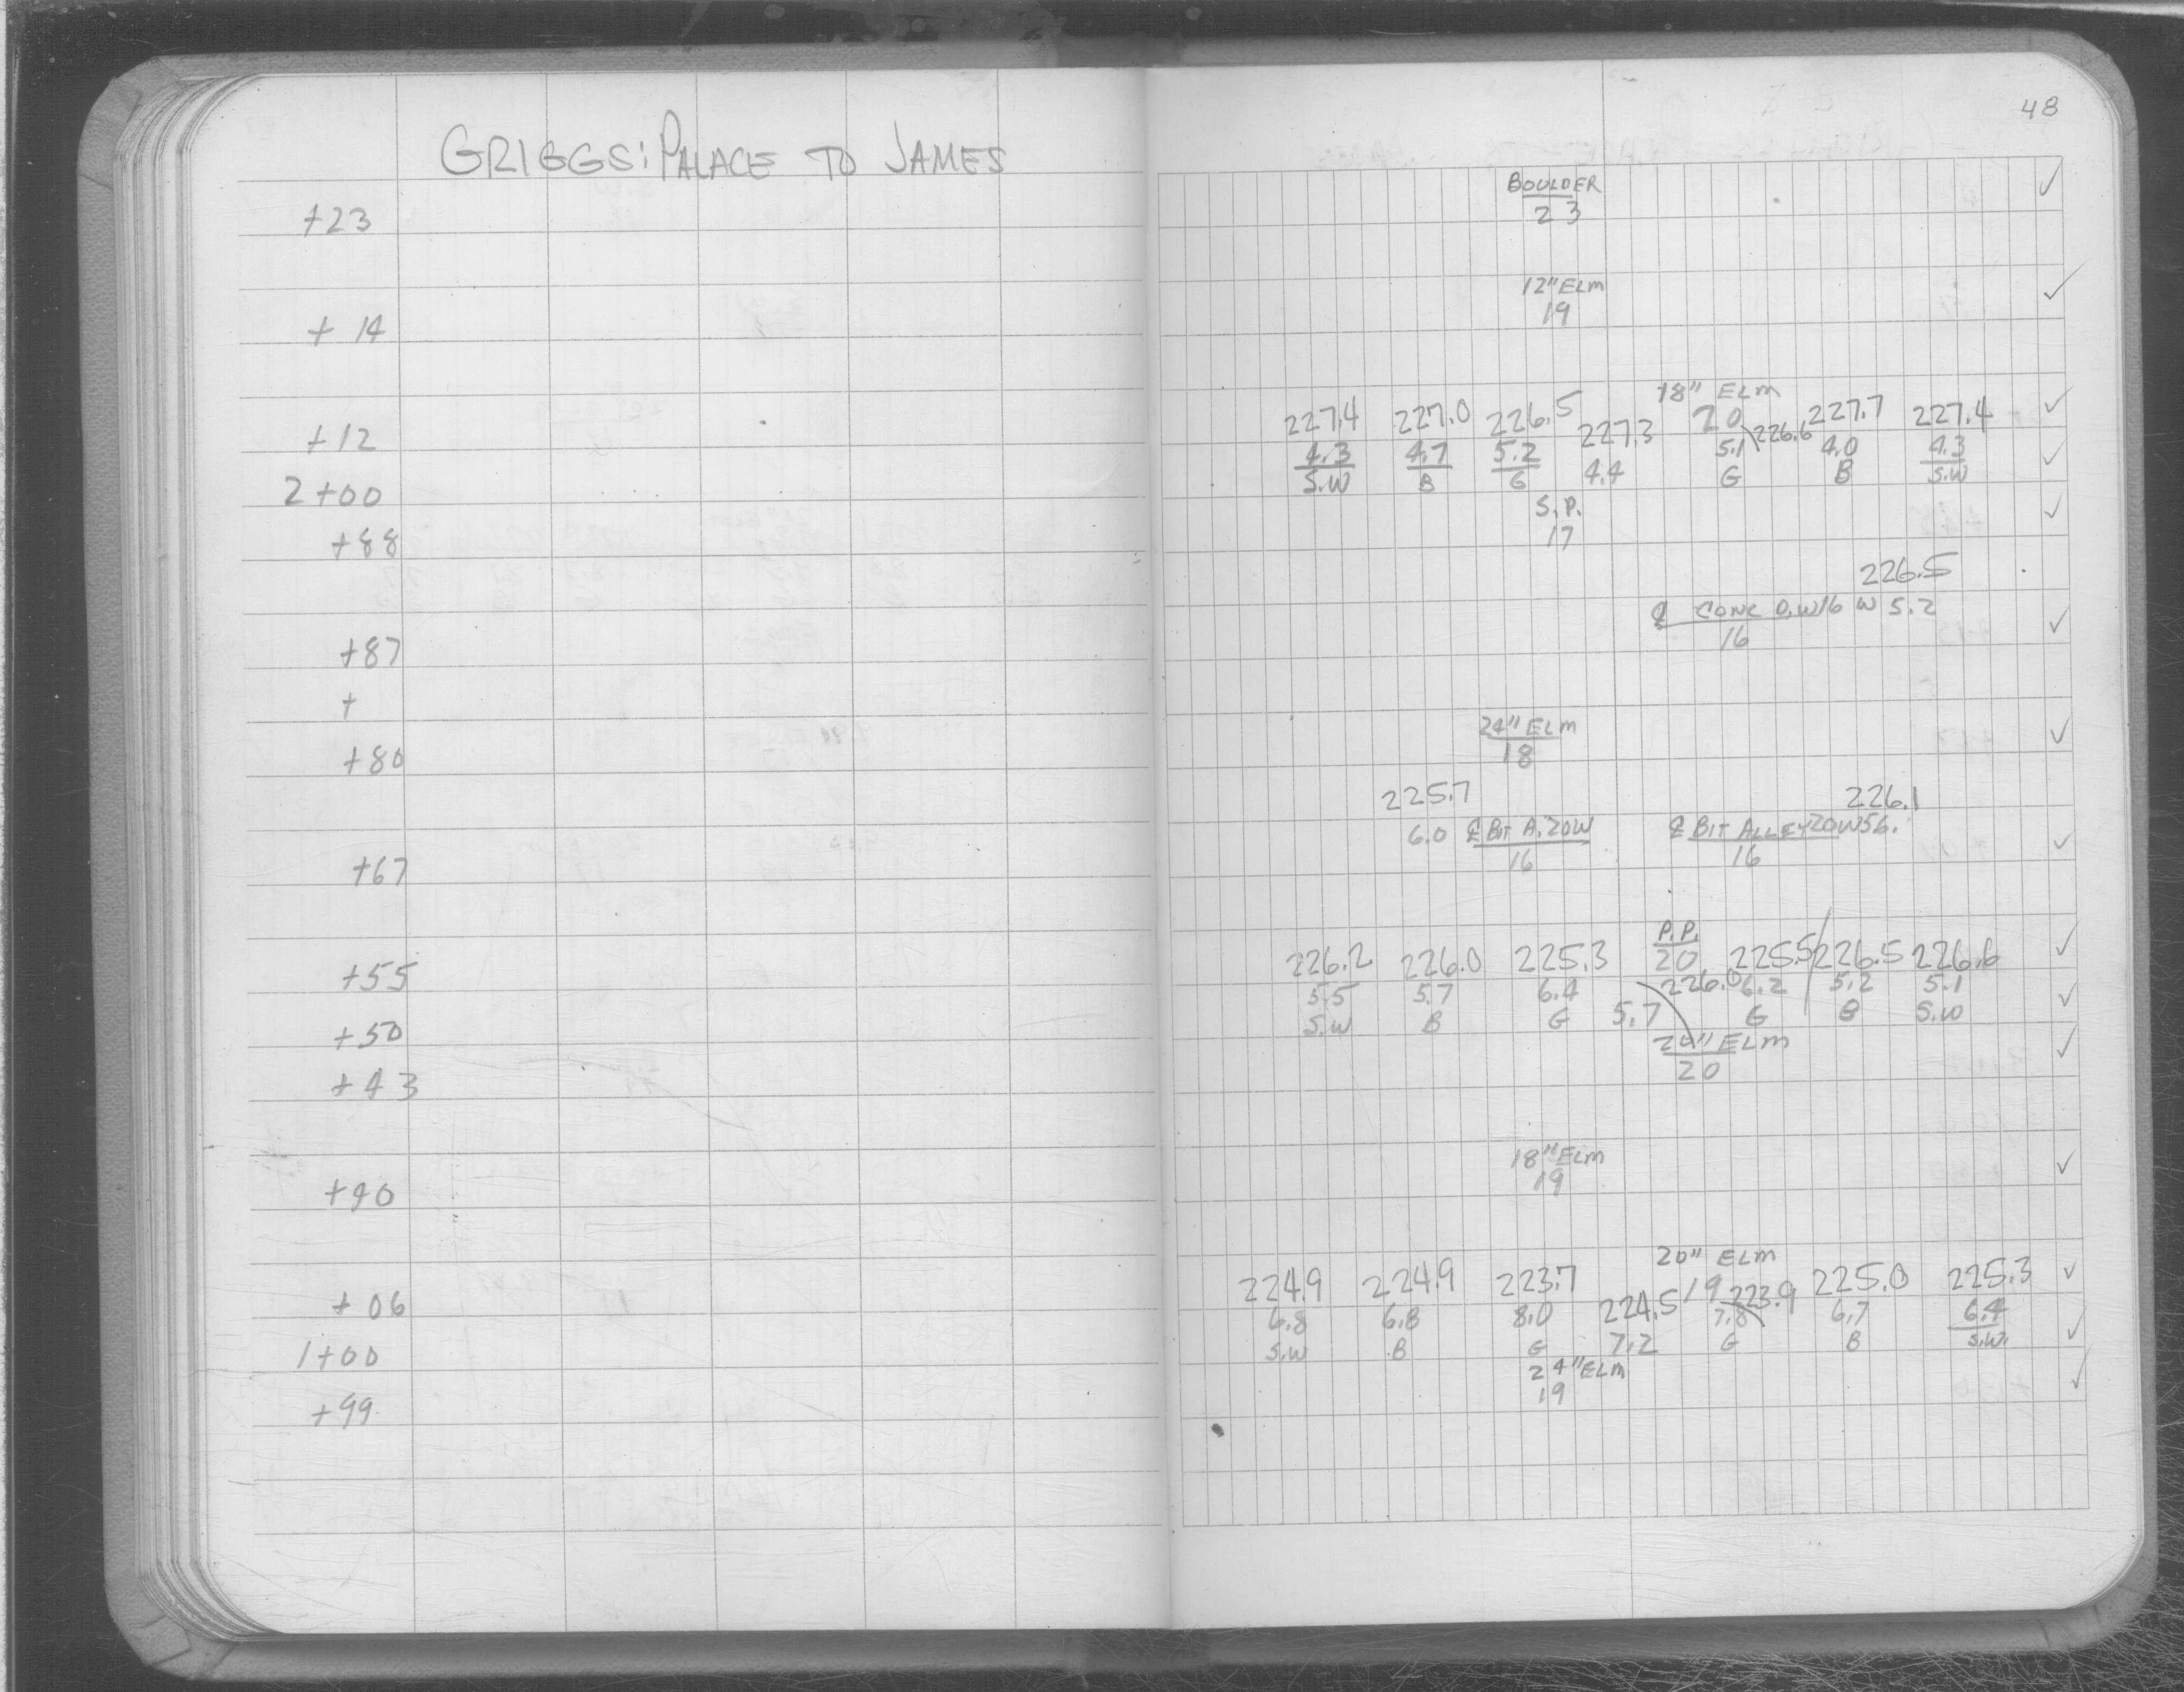 48
GRIGGS: PALACE TO JAMES
+23
BOULDER
23
+14
12" ELM
19
18" ELM
227.4 227.0 226.5 227.3 20 226.6 227.7 227.4
+12
4.3 4.7 5.2 4.4 5.1 4.0 4.3
S.W B G G B S.W
2+00
S.P.
17
+88
226.5
℄ CONC D.W 16 W 5.2
16
+87
+
24" ELM
18
+80
225.7 226.1
6.0 ℄ BIT A. 20W ℄ BIT ALLEY 20W 5.6
16 16
+67
P.P.
226.2 226.0 225.3 20 225.5 226.5 226.6
+55
5.5 5.7 6.4 226.0 6.2 5.2 5.1
S.W B G 5.7 G B S.W
+50
24" ELM
20
+43
18" ELM
19
+40
20" ELM
224.9 224.9 223.7 224.5 19 223.9 225.0 225.3
+06
6.8 6.8 8.0 7.8 6.7 6.4
S.W B G 7.2 G B S.W.
1+00
24" ELM
19
+99